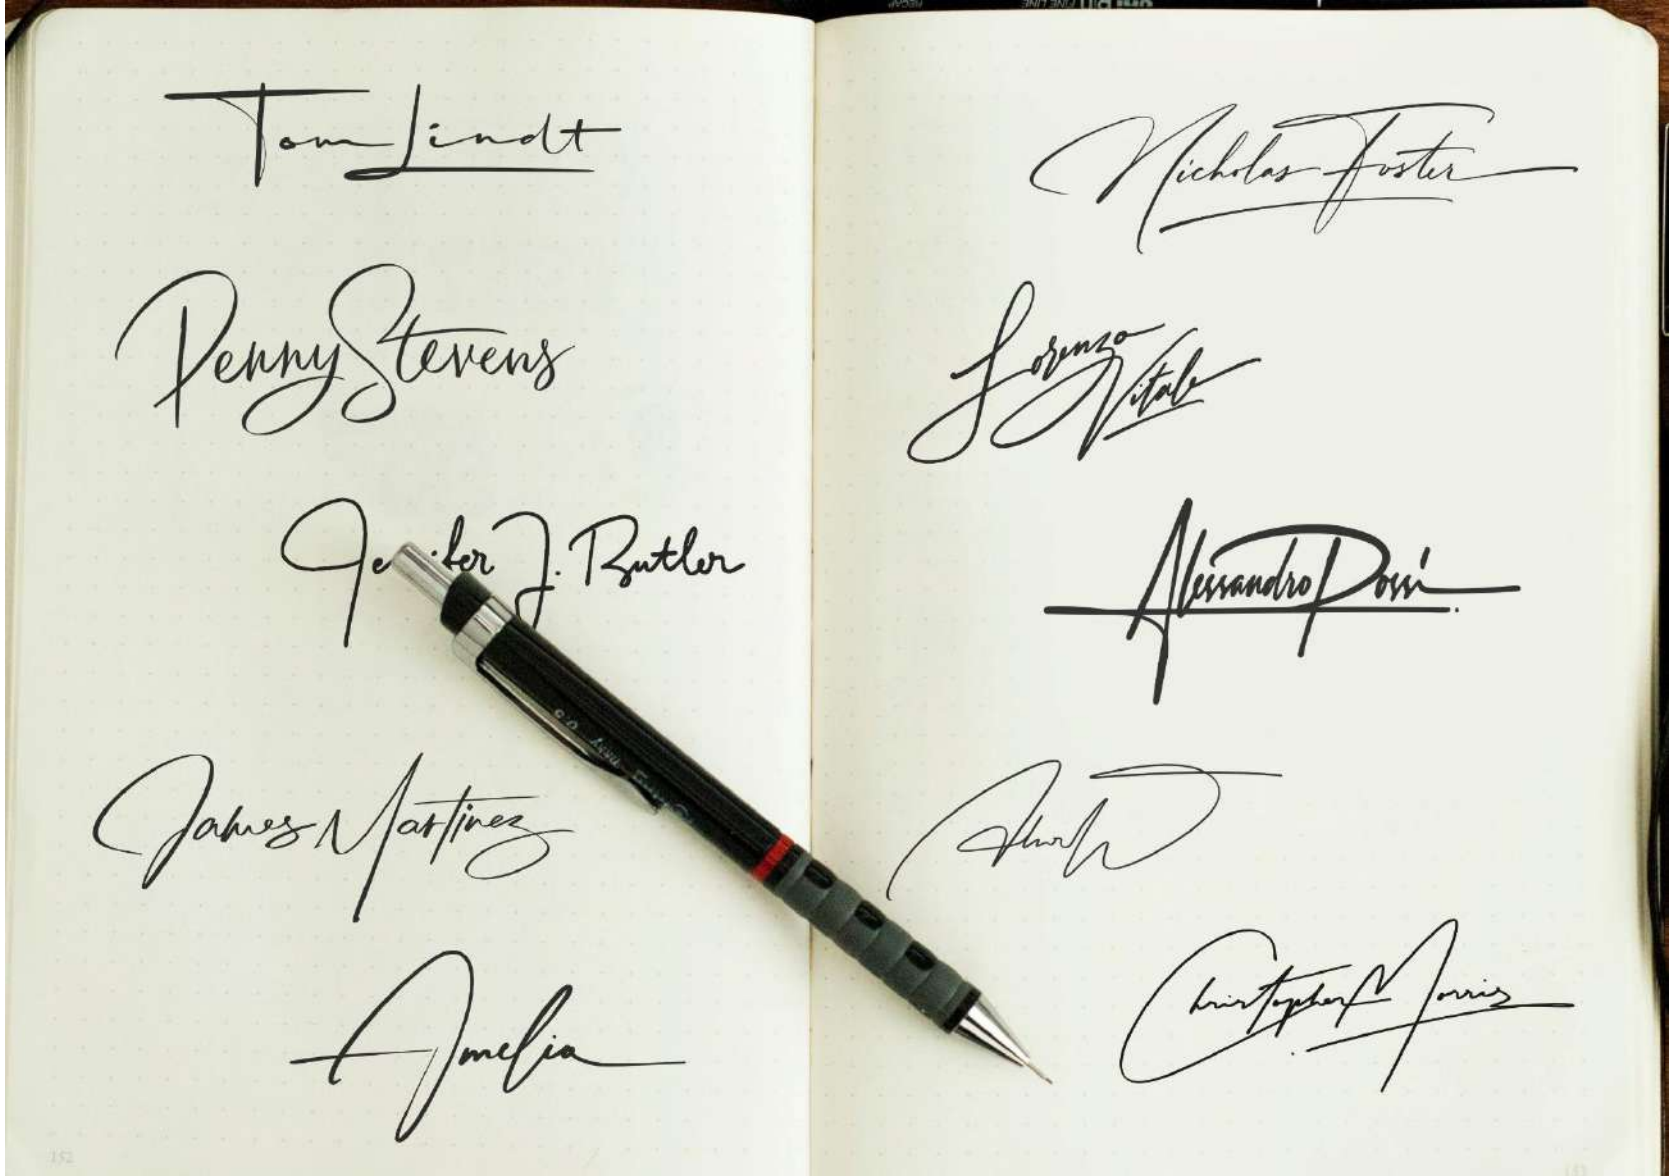 Tom Lindt
Penny Stevens
Jennifer J. Butler
James Martinez
Amelia
152
Nicholas Foster
Lorenzo
Vitale
Alessandro Rossi
Christopher Morris
153
uni PiN FINE LINE
0.5